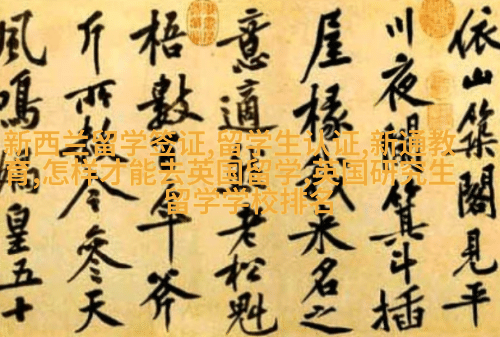 依山築閣見平
川夜闌箕斗插
屋椽我來名之
意適然老松魁
梧數百年斧
斤所赦今參天
風鳴媧皇五十
新西兰留学签证,留学生认证,新通教
育,怎样才能去英国留学,英国研究生
留学学校排名